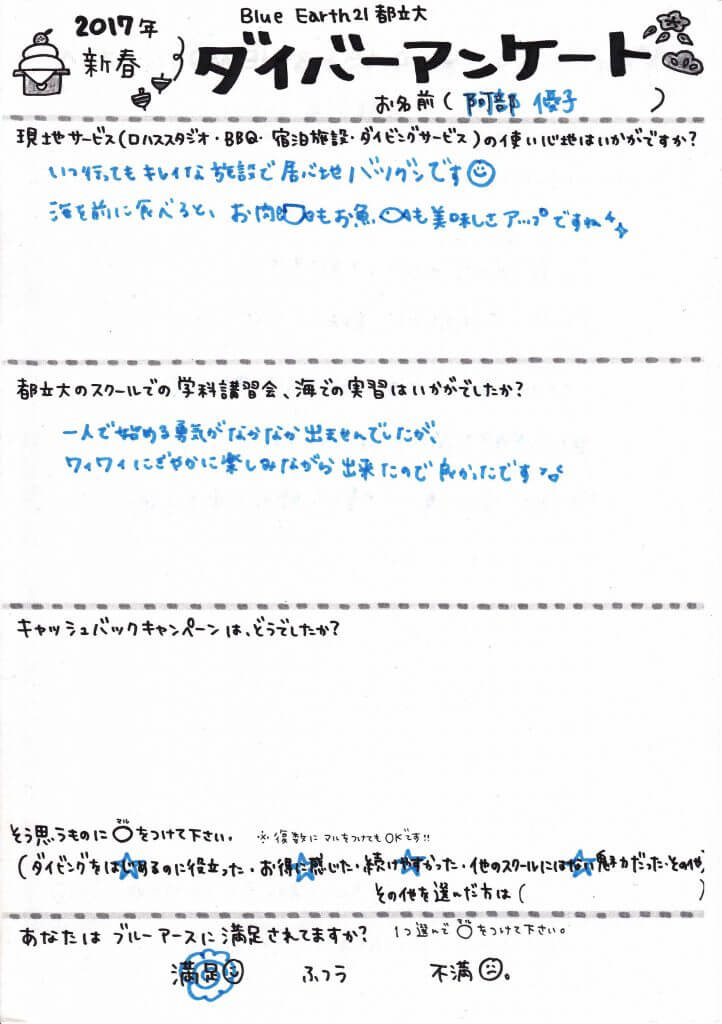 Blue Earth21 都立大
2017年
新春
ダイバーアンケート
お名前( 阿部 優子 )
現地サービス(ロハススタジオ・BBQ・宿泊施設・ダイビングサービス)の使い心地はいかがですか?
いつ行ってもキレイな施設で居心地バツグンです
海を前に食べると、お肉もお魚も美味しさアップですね
都立大のスクールでの学科講習会、海での実習はいかがでしたか?
一人で始める勇気がなかなか出ませんでしたが、
ワイワイにぎやかに楽しみながら出来たので良かったです
キャッシュバックキャンペーンは、どうでしたか?
マル
そう思うものに○をつけて下さい。 ※復数にマルをつけてもOKです!!
(ダイビングをはじめるのに役立った・お得に感じた・続けやすかった・他のスクールにはない魅力だった・その他)
その他を選んだ方は( )
あなたはブルーアースに満足されてますか? 1つ選んで○をつけて下さい。
満足 ふつう 不満。